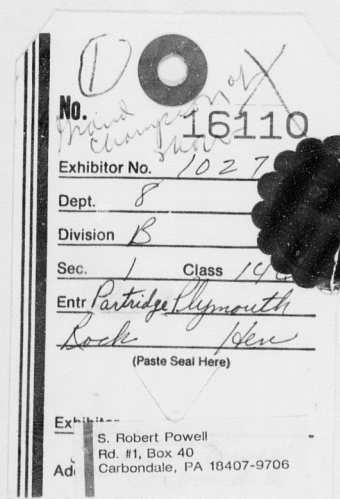 1
Grand
Champion of
Show
X
No. 16110
Exhibitor No. 1027
Dept. 8
Division B
Sec. 1 Class
Entr Partridge Plymouth
Rock Hen
(Paste Seal Here)
Exhibitor
S. Robert Powell
Rd. #1, Box 40
Ad Carbondale, PA 18407-9706